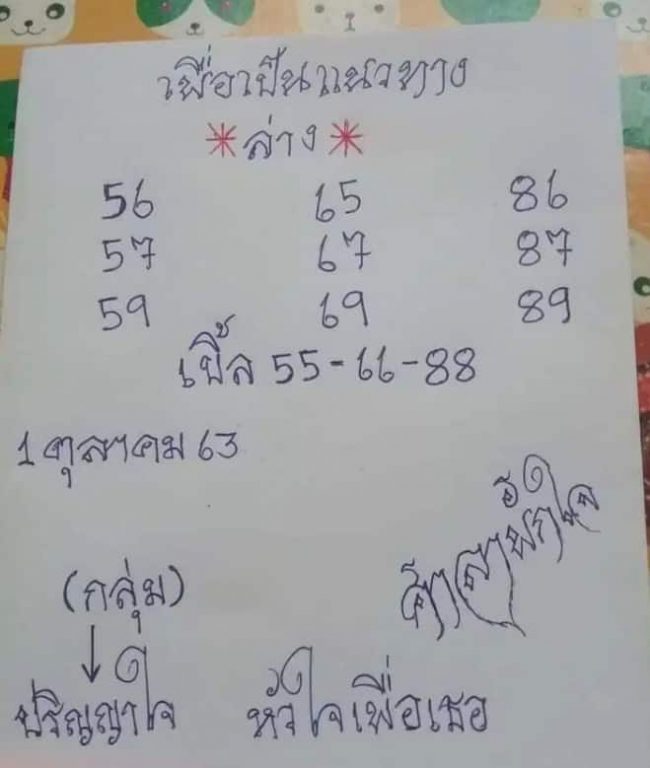 เพื่อเป็นแนวทาง
*ล่าง*
56 65 86
57 67 87
59 69 89
เบิ้ล 55-66-88
1 ตุลาคม 63
ศาลาพักใจ
(กลุ่ม)
↓
ปริญญาใจ หัวใจเพื่อเธอ